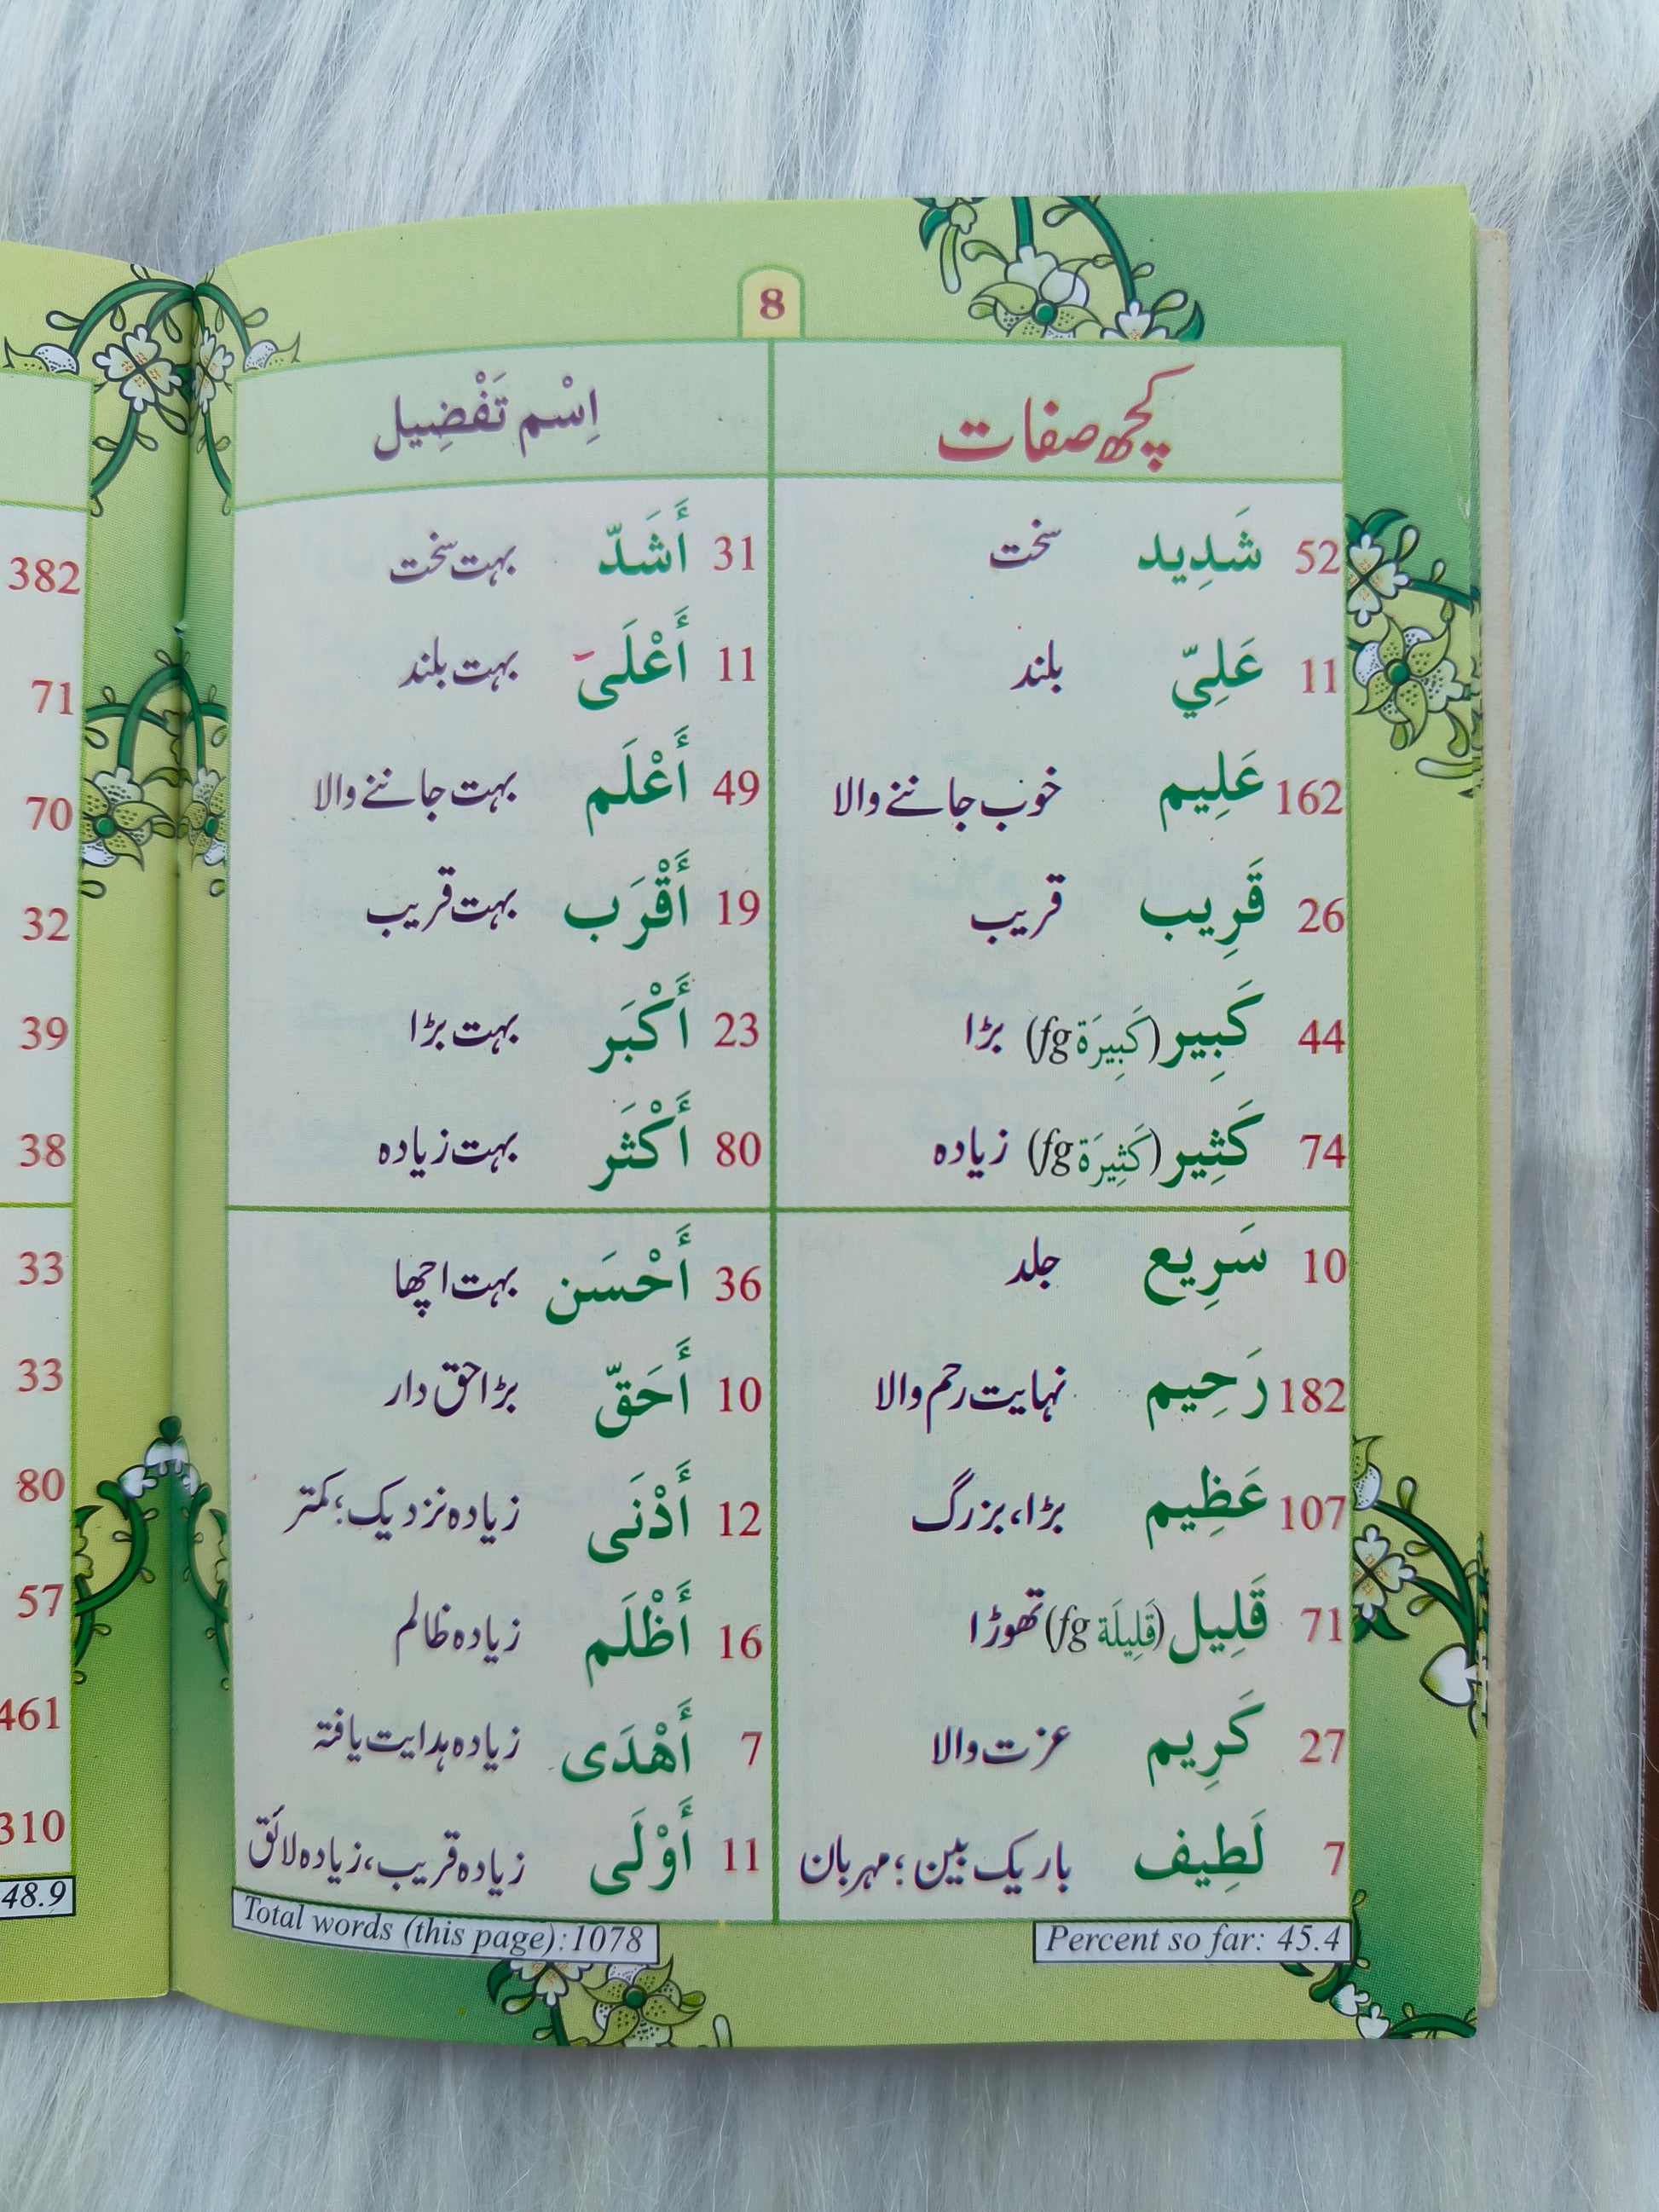 8
کچھ صفات
اِسْم تَفْضِیل
52 شَدِيد سخت
31 أَشَدّ بہت سخت
11 عَلِيّ بلند
11 أَعْلَىٰ بہت بلند
162 عَلِيم خوب جاننے والا
49 أَعْلَم بہت جاننے والا
26 قَرِيب قریب
19 أَقْرَب بہت قریب
44 كَبِير (كَبِيرَة fg) بڑا
23 أَكْبَر بہت بڑا
74 كَثِير (كَثِيرَة fg) زیادہ
80 أَكْثَر بہت زیادہ
10 سَرِيع جلد
36 أَحْسَن بہت اچھا
182 رَحِيم نہایت رحم والا
10 أَحَقّ بڑا حق دار
107 عَظِيم بڑا، بزرگ
12 أَدْنَى زیادہ نزدیک؛ کمتر
71 قَلِيل (قَلِيلَة fg) تھوڑا
16 أَظْلَم زیادہ ظالم
27 كَرِيم عزت والا
7 أَهْدَى زیادہ ہدایت یافتہ
7 لَطِيف باریک بین؛ مہربان
11 أَوْلَى زیادہ قریب، زیادہ لائق
Total words (this page):1078
Percent so far: 45.4
382
71
70
32
39
38
33
33
80
57
461
310
48.9